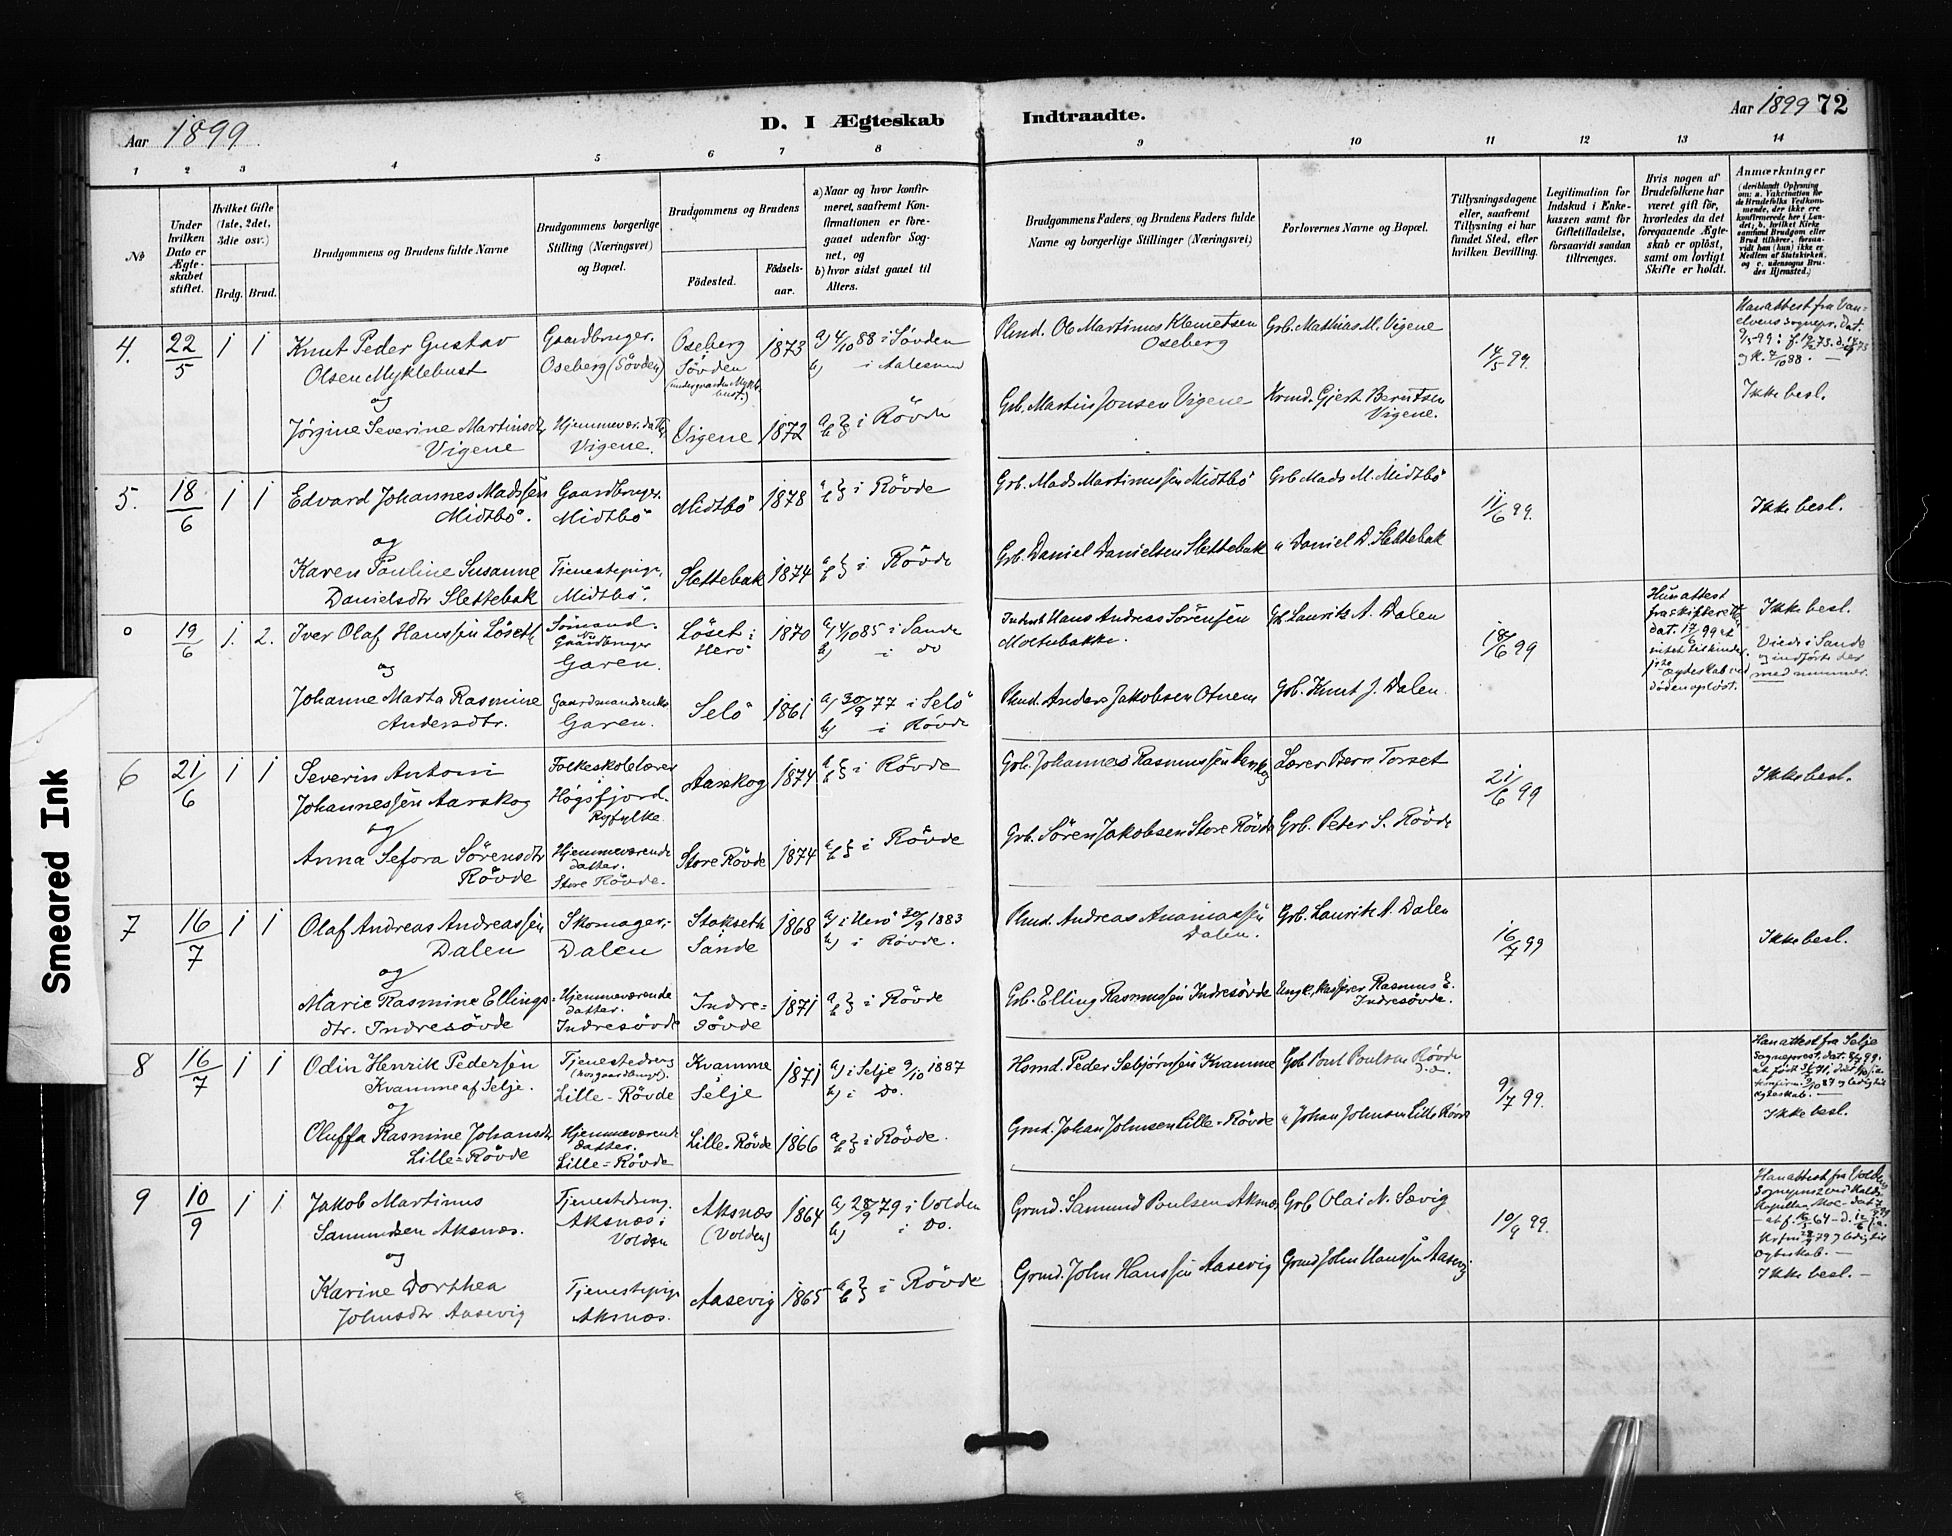 Aar 1899
D. I Ægteskab Indtraadte.
Aar 1899 72
1 2 3 4 5 6 7 8 9 10 11 12 13 14
№
Under hvilken Dato er Ægteskabet stiftet.
Hvilket Gifte (1ste, 2det, 3die osv.)
Brdg. Brud.
Brudgommens og Brudens fulde Navne
Brudgommens borgerlige Stilling (Næringsvei) og Bopæl.
Brudgommens og Brudens
Fødested.
Fødsels-aar.
a) Naar og hvor konfir-
meret, saafremt Kon-
firmationen er fore-
gaaet udenfor Sog-
net, og
b) hvor sidst gaaet til
Alters.
Brudgommens Faders, og Brudens Faders fulde
Navne og borgerlige Stillinger (Næringsvei)
Forlovernes Navne og Bopæl.
Tillysningsdagene
eller, saafremt
Tillysning ei har
fundet Sted, efter
hvilken Bevilling.
Legitimation for
Indskud i Enke-
kassen samt for
Giftetilladelse,
forsaavidt saadan
tiltrænges.
Hvis nogen af
Brudefolkene har
været gift før,
hvorledes da det
foregaaende Ægte-
skab er opløst,
samt om lovligt
Skifte er holdt.
Anmærkninger
(deriblandt Oplysning
om: a. Vakcination for
de Brudefolks Vedkom-
mende, der ikke ere
konfirmerede her i Lan-
det; b. hvilket Kirke-
samfund Brudgom eller
Brud tilhører, forsaa-
vidt han (hun) ikke er
Medlem af Statskirken,
og c. udensogns Bru-
des Hjemsted.)
4. 22/5 1 1
Knut Peder Gustav
Olsen Myklebust
og
Jörgine Severine Martinsdtr
Vigene
Gaardbruger.
Oseberg (Sövden)
Hjemmevær. datter
Vigene.
Oseberg
Sövden
Vigene
1873
1872
a) 4/10 88 i Sövden
b) i Aalesund
a) b) i Rövde
Plmd. Ole Martinus Klemetsen
Oseberg
Grb. Martin Jonsen Vigene
Grb. Mathias M. Vigene
Krmd. Gjert Berntsen
Vigene.
14/5 99.
Ikke besl.
5. 18/6 1 1
Edvard Johannes Madssen
Midtbö.
og
Karen Pauline Susanne
Danielsdtr Slettebak
Gaardbruger.
Midtbö
Tjenestepige,
Midtbö.
Midtbö
Slettebak
1878
1874
a) b) i Rövde
a) b) i Rövde
Grb. Mads Martinussen Midtbö
Grb. Daniel Danielsen Slettebak
Grb Mads M. Midtbö
" Daniel D. Slettebak
11/6 99.
Ikke besl.
0 19/6 1. 2.
Iver Olaf Hanssen Löseth
og
Johanne Marta Rasmine
Andersdtr.
Sömand.
Gaardbruger
Garen.
Gaardmandsenke
Garen.
Löset i
Herö
Selö
1870
1861
a) 4/10 85 i Sande
b) i do
a) 30/9 77 i Selö
b) i Rövde
Hans Andreas Sörensen
Moltubakke.
Plmd. Anders Jakobsen Otnem
Gb. Laurits A. Dalen
Grb. Knut J. Dalen.
18/6 99
Hun attest
fra skifteretten
dat. 17/6 99
Ægteskab ved
döden oplöst.
Ikke besl.
Viede i Sande
og indförte der
med nummer.
6 21/6 1 1
Severin Antoni
Johannessen Aarskog
og
Anna Sefora Sörensdtr
Rövde
Folkeskolelærer
i
Högsfjord.
Ryfylke
Hjemmeværende
datter.
Store Rövde.
Aarskog
Store Rövde
1874
1874
a) b) i Rövde
a) b) i Rövde
Grb. Johannes Rasmussen Aarskog
Grb. Sören Jakobsen Store Rövde
Lærer Bern. Torset
Grb. Peter S. Rövde
21/6 99
Ikke besl.
7 16/7 1 1
Olaf Andreas Andreassen
Dalen
og
Marie Rasmine Ellings-
dtr. Indresövde
Skomager,
Dalen
Hjemmeværende
datter.
Indresövde
Stokseth
Sande
Indre-
sövde
1868
1871
a) i Herö 30/9 1883
b) i Rövde.
a) b) i Rövde
Plmd. Andreas Ananiassen
Dalen.
Grb. Elling Rasmussen Indresövde
Grb. Laurits A. Dalen
Ungk. kasserer Rasmus E.
Indresövde.
16/7 99
Ikke besl.
8 16/7 1 1
Odin Henrik Pedersen
Kvamme af Selje.
og
Oluffa Rasmine Johansdtr
Lille-Rövde
Tjenestedreng
Lille-Rövde
Hjemmeværende
Datter.
Lille-Rövde
Kvamme
Selje
Lille-Rövde
1871
1866
a) i Selje 9/10 1887
b) i Do.
a) b) i Rövde.
Hsmd. Peder Selbjörnsen Kvamme
Grmd. Johan Johnsen Lille-Rövde
Grb Poul Poulsen Rövde
" Johan Johnsen Lille Rövde
9/7 99.
Han attest fra Selje
Ikke besl.
9 10/9 1 1
Jakob Martinus
Samundsen Aksnæs.
og
Karine Dorthea
Johnsdtr Aasevig
Tjenestedreng.
Aksnæs i
Volden
Tjenestepige
Aksnæs.
Aksnæs
(Volden)
Aasevig
1864
1865
a) 28/9 79 i Volden
b) i Do.
a) b) i Rövde
Grmd. Samund Poulsen Aksnæs
Grmd. John Hanssen Aasevig
Grb Olai N. Sævig
Grmd John Hanssen Aasevig
10/9 99.
Ikke besl.
Smeared Ink